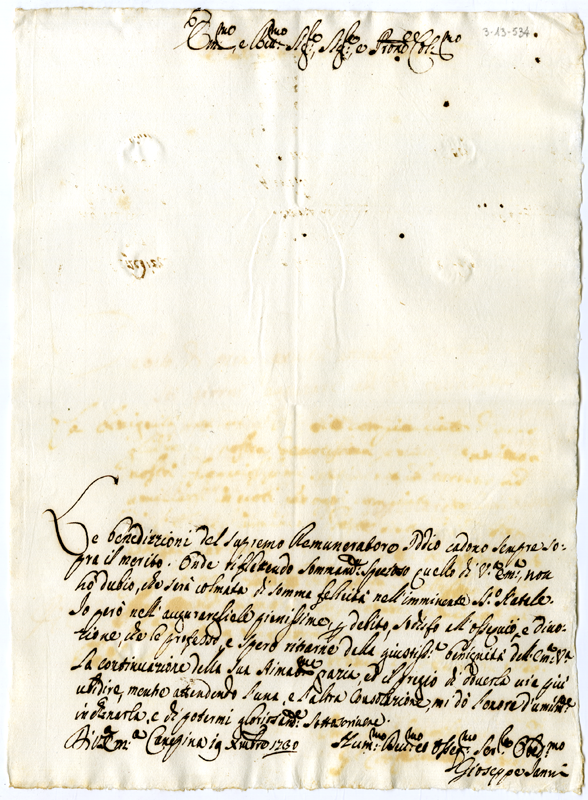 3-13-534
Em.mo, e Rev.mo Sig.re, Sig.re, e Pron Col.mo
Le benedizzioni del supremo Remuneratore Iddio cadono sempre so-
pra il merito. Onde riflettendo sommam.te spesso quello di V.a Em.a, non
hò dubio, che serà colmata di somma felicità nell'imminente S.o Natale.
Io però nell'augurarcele pienissime, p debito, sodisfo all'ossequio, e divo-
zione che le professo, e spero ritrarne della giustiss.a benignità dell'Em.a V.a
la continuazione della sua grazia, ed il pregio di doverla via più
ubidire, mentre attendendo l'una, e l'altra Consolazione, mi dò l'onore d'umilm.te
inchinarla, e di potermi gloriosam.te sottoscrivere
Di V.a Em.a 19 Xmbre 1730
Hum.mo Dev.mo ed Osseq.mo Ser.re Obb.mo
Gioseppe